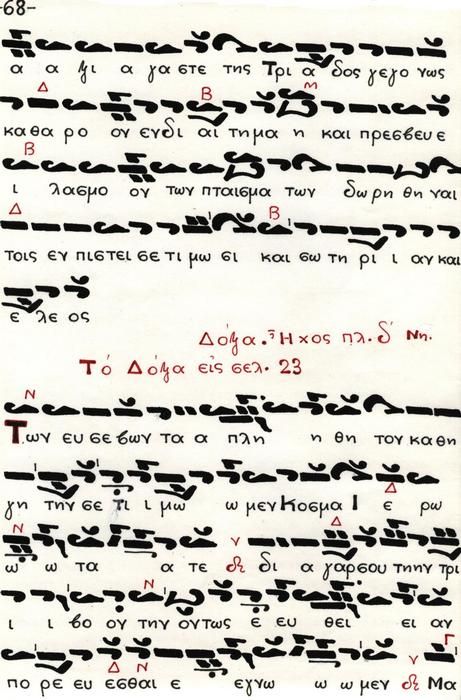 -68-
α α ξι α γα στε της Τρι α δος γεγο νως
Δ Β π
κα θα ρο ον ενδι αι τημα η και πρεσβευε
Β
ι λασμο ον των πταισμα των δω ρη θη ναι
Δ Β
τοις εν πιστει σε τι μω σι και σω τη ρι ι αν και
ε λε ος
Δόξα. Ἦχος πλ. δ΄ Νη.
Τό Δόξα εἰς σελ. 23
Ν
Των ευ σε βων τα α πλη η θη του κα θη
γη την σε τι ι μω ω μεν Κοσμα Ι ε ρω
Ν Δ
ω ω τα α τε δι α γαρ σου τη ην τρι
Ν
ι ι βο ον την οντως ε ευ θει ει αν
Γ
πο ρε ευ εσθαι ε εγνω ω ω μεν Μα
Δ Ν